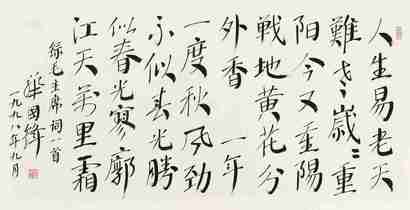 人生易老天
難老歲々重
阳今又重陽
戰地黄花分
外香 一年
一度秋风劲
不似春光勝
似春光寥廓
江天萬里霜
録毛主席词一首
華國鋒
一九九八年九月